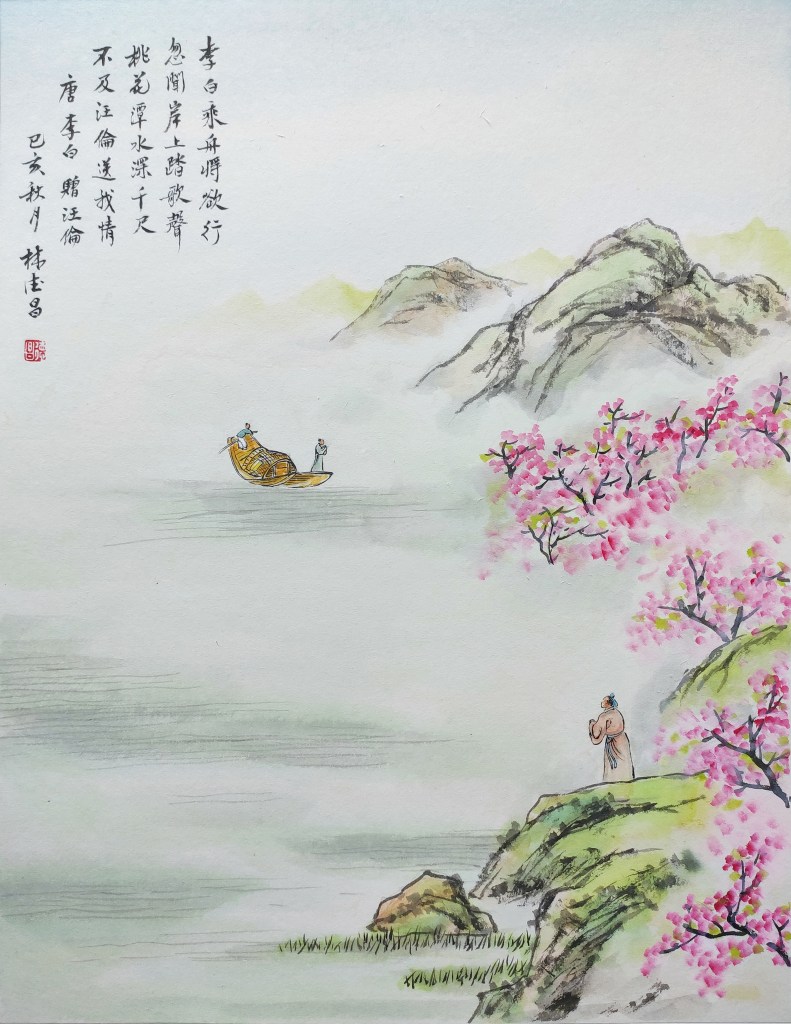 李白乘舟將欲行
忽聞岸上踏歌聲
桃花潭水深千尺
不及汪倫送我情
唐李白贈汪倫
己亥秋月
林德昌